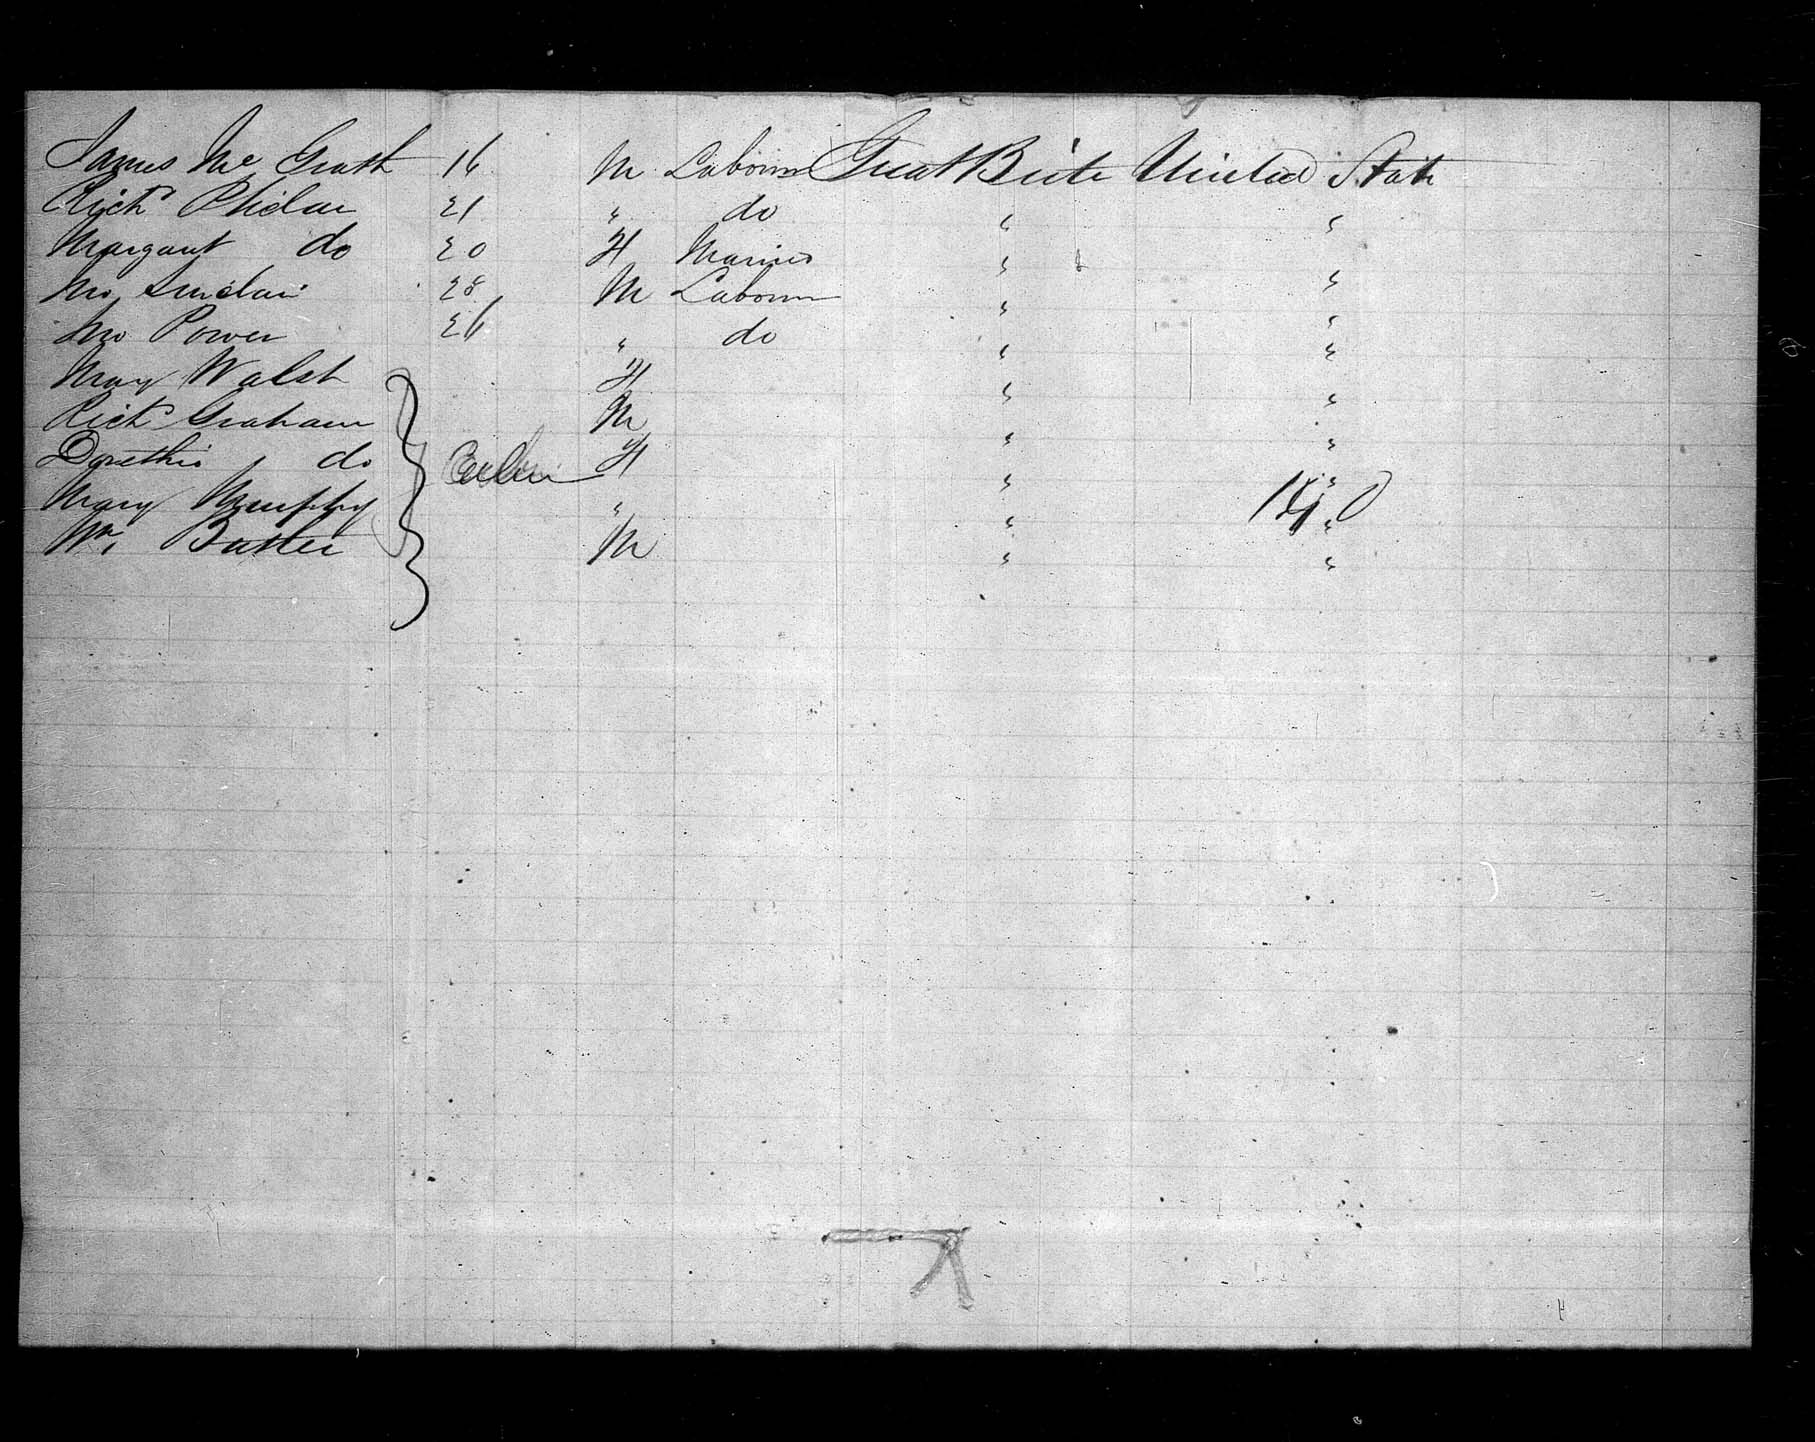 James Mc Grath 16 M Labourer Great Brite United State
Richd Phelan 21 " do " "
Margaret do 20 F Married " "
Jno Sinclair 28 M Labourer " "
Jno Power 26 " do " "
Mary Walsh F " "
Richd Graham M " "
Dorethia do Cabin F " "
Mary Murphy " " "
Wm Butler M " "
140